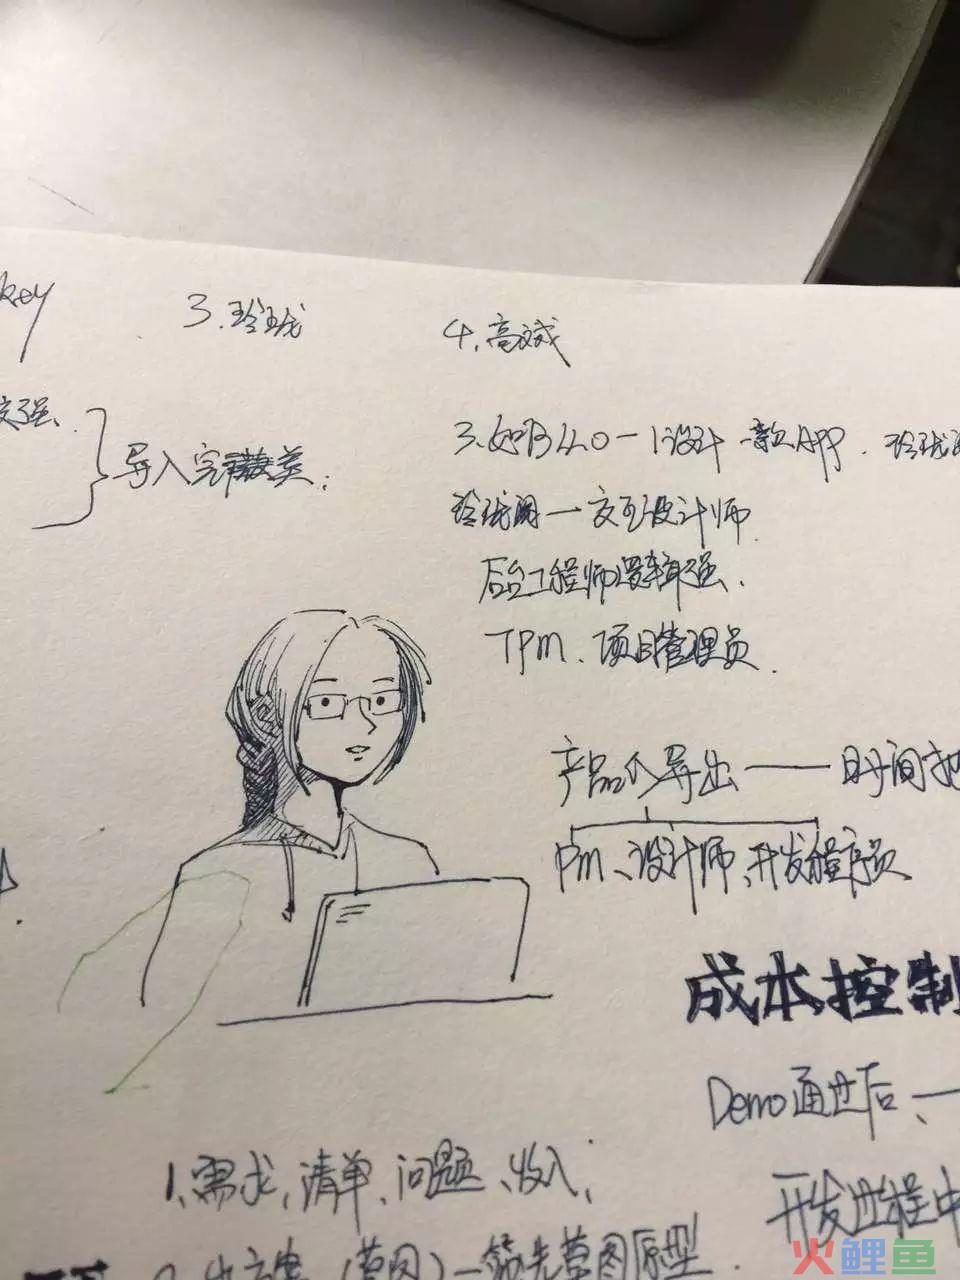 key
3.玲珑
4.高斌
导入完
类:
3.如何从0-1设计一款APP.玲珑
玲珑阁一交互设计师
后台工程师逻辑强、
TPM、项目管理员
产品介 导出——时间
PM、设计师、开发程序员
成本控制
Demo通过后、—
1、需求,清单、问题、收入,
开发过程中
(草图)—筛选草图原型
火鲤鱼